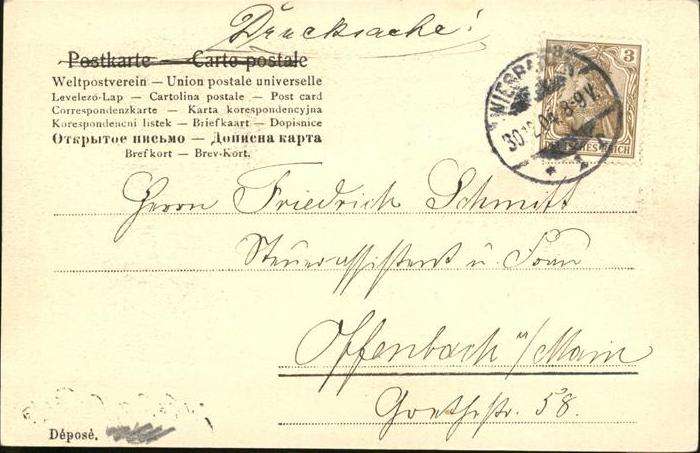 Drucksache!
Postkarte — Carte postale
Weltpostverein — Union postale universelle
Levelező-Lap — Cartolina postale — Post card
Correspondenzkarte — Karta korespondencyjna
Korespondencni listek — Briefkaart — Dopisnice
Открытое письмо — Дописна карта
Brefkort — Brev-Kort.
3
DEUTSCHES REICH
WIESBADEN
30.12.04. 8-9V.
Herrn Friedrich Schmitt
Steuerassistent u. Frau
Offenbach a/Main
Goethestr. 58.
Déposé.